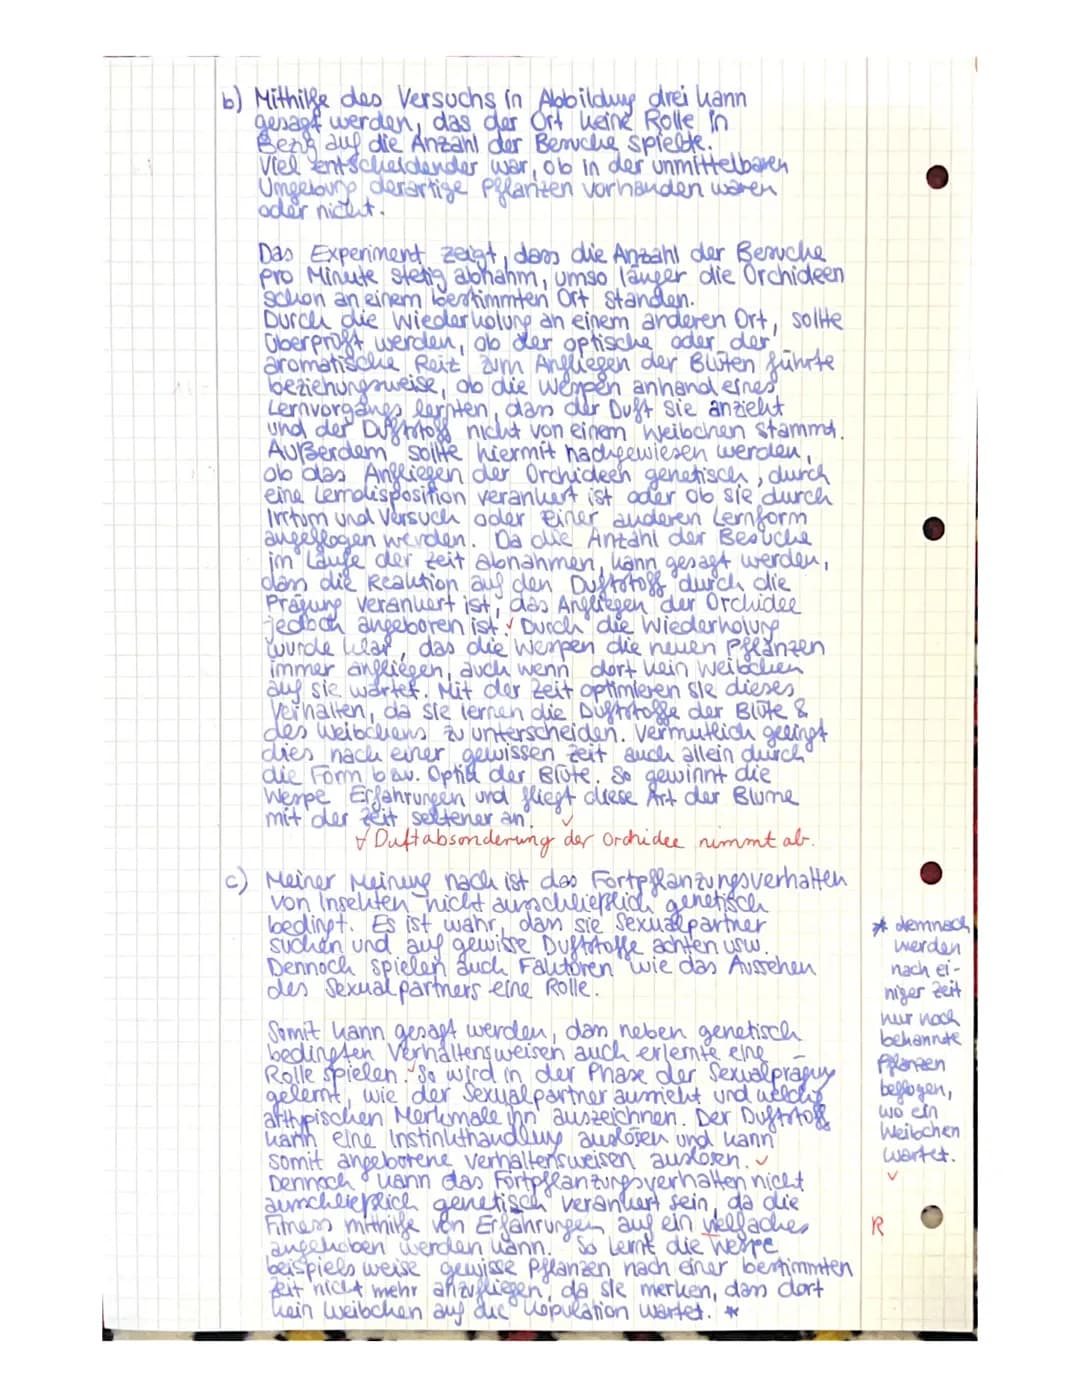 b) Mithilfe des Versuchs in Abbildung drei kann
gesagt werden, das der Ort keine Rolle in
Bezug auf die Anzahl der Besuche spielte.
Viel entscheidender war, ob in der unmittelbaren
Umgebung derartige Pflanzen vorhanden waren
oder nicht.
Das Experiment zeigt, dass die Anzahl der Besuche
pro Minute stetig abnahm, umso länger die Orchideen
schon an einem bestimmten Ort standen.
Durch die Wiederholung an einem anderen Ort, sollte
überprüft werden, ob der optische oder der
aromatische Reiz zum Anfliegen der Blüten führte
beziehungsweise, ob die Wespen anhand eines
Lernvorgangs lernten, dass der Duft sie anzieht
und der Duftstoff nicht von einem Weibchen stammt.
Außerdem sollte hiermit nachgewiesen werden,
ob das Anfliegen der Orchideen genetisch, durch
eine Lerndisposition verankert ist oder ob sie durch
Irrtum und Versuch oder einer anderen Lernform
angeflogen werden. Da die Anzahl der Besuche
im Laufe der Zeit abnahmen, kann gesagt werden,
dass die Reaktion auf den Duftstoff durch die
Prägung verankert ist, das Anfliegen der Orchidee
jedoch angeboren ist. Durch die Wiederholung
wurde klar, das die Wespen die neuen Pflanzen
immer anfliegen, auch wenn dort kein Weibchen
auf sie wartet. Mit der Zeit optimieren sie dieses
Verhalten, da sie lernen die Duftstoffe der Blüte &
des Weibchens zu unterscheiden. Vermutlich gelingt
dies nach einer gewissen Zeit auch allein durch
die Form bzw. Optik der Blüte. So gewinnt die
Wespe Erfahrungen und fliegt diese Art der Blume
mit der Zeit seltener an.
√ Duftabsonderung der Orchidee nimmt ab.
c) Meiner Meinung nach ist das Fortpflanzungsverhalten
von Insekten nicht ausschließlich genetisch
bedingt. Es ist wahr, dass sie Sexualpartner
suchen und auf gewisse Duftstoffe achten usw.
Dennoch spielen auch Faktoren wie das Aussehen
des Sexualpartners eine Rolle.
Somit kann gesagt werden, dass neben genetisch
bedingten Verhaltensweisen auch erlernte eine
Rolle spielen. So wird in der Phase der Sexualprägung
gelernt, wie der Sexualpartner aussieht und welche
arttypischen Merkmale ihn auszeichnen. Der Duftstoff
kann eine Instinkthandlung auslösen und kann
somit angeborene Verhaltensweisen auslösen.
Dennoch kann das Fortpflanzungsverhalten nicht
ausschließlich genetisch verankert sein, da die
Fitness mithilfe von Erfahrungen auf ein vielfaches
angehoben werden kann. So lernt die Wespe
beispielsweise gewisse Pflanzen nach einer bestimmten
Zeit nicht mehr anzufliegen, da sie merken, dass dort
kein Weibchen auf die Kopulation wartet. *
* demnach
werden
nach ei-
niger Zeit
nur noch
bekannte
Pflanzen
beflogen,
wo ein
Weibchen
wartet.
R